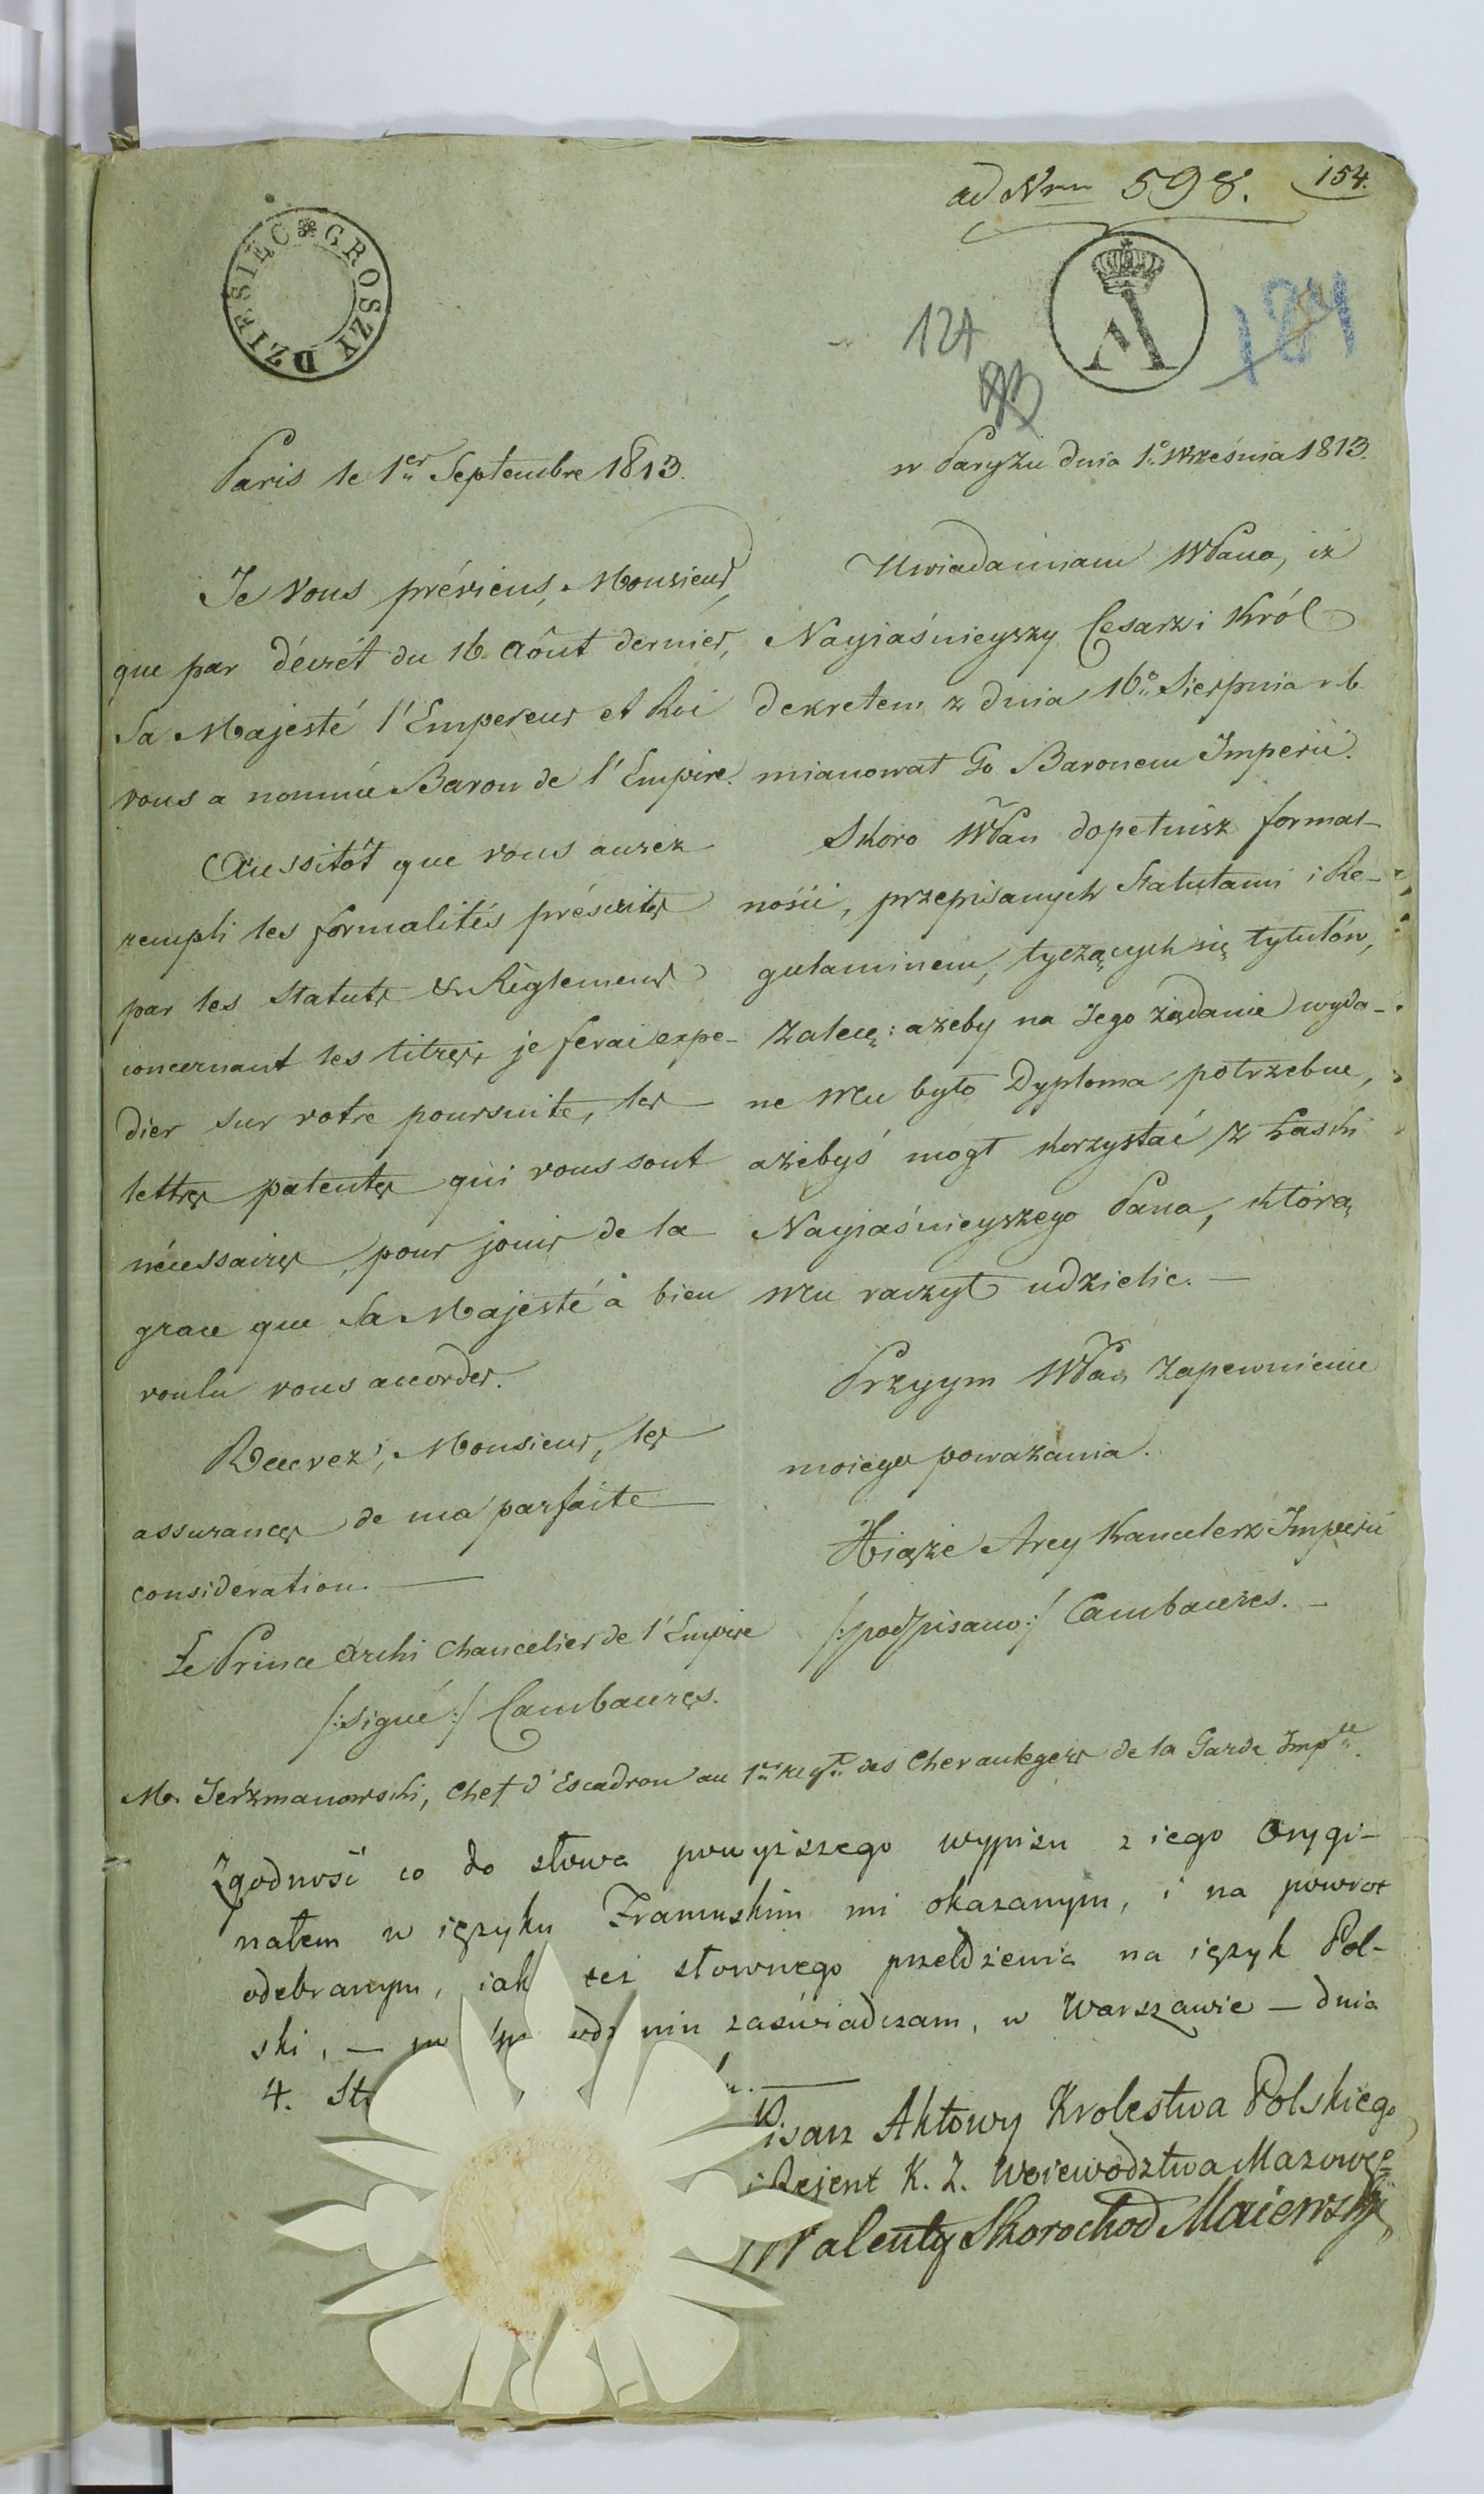 ad Nrm 598.
154.
DZIESIĘC GROSZY
A
124
93
184
Paris le 1er Septembre 1813.
Je Vous préviens, Monsieur,
que par décrét du 16 Aôut dernier,
Sa Majesté l'Empereur et Roi
vous a nommé Baron de l'Empire.
Aussitôt que vous aurez
rempli les formalités préscrites
par les Statuts & Règlemens
concernant les titres, je ferai expe-
dier sur votre poursuite, les
lettres patentes qui vous sont
nécessaires, pour jouir de la
grace que Sa Majesté à bien
voulu vous accorder.
Recevez, Monsieur, les
assurances de ma parfaite
considération. —
Le Prince Archi Chancelier de l'Empire
/:signé:/ Cambacerès.
w Paryżu dnia 1o Września 1813.
Uwiadamiam WPana, iż
Nayiaśnieyszy Cesarz i Król
dekretem z dnia 16o Sierpnia r. b.
mianował Go Baronem Imperii.
Skoro WPan dopełnisz formal-
ności, przepisanych Statutami i Re-
gulaminem, tyczących się tytułów,
zalecę: ażeby na Jego żądanie wyda-
ne Mu było Dyploma potrzebne,
ażebyś mógł korzystać z łaski
Nayiaśnieyszego Pana, którą
Mu raczył udzielic. —
Przyym WPan zapewnienie
moiego poważania.
Xiąże Arcy Kanclerz Imperii
/:podpisano:/ Cambacerès. —
M. Jerzmanowski, Chef d'Escadron au 1er Regt des Chevaulegers de la Garde Imple.
Zgodność co do słowa powyższego wypisu z iego Orygi-
nałem w ięzyku Francuskim mi okazanym, i na powrot
odebranym, iak też słownego przełożenia na ięzyk Pol-
ski, — zaświadczam, w Warszawie — dnia
4.
Pisarz Aktowy Krolestwa Polskiego
i Rejent K. Z. Woiewodztwa Mazowgo
Walenty Skorochod Maiewski